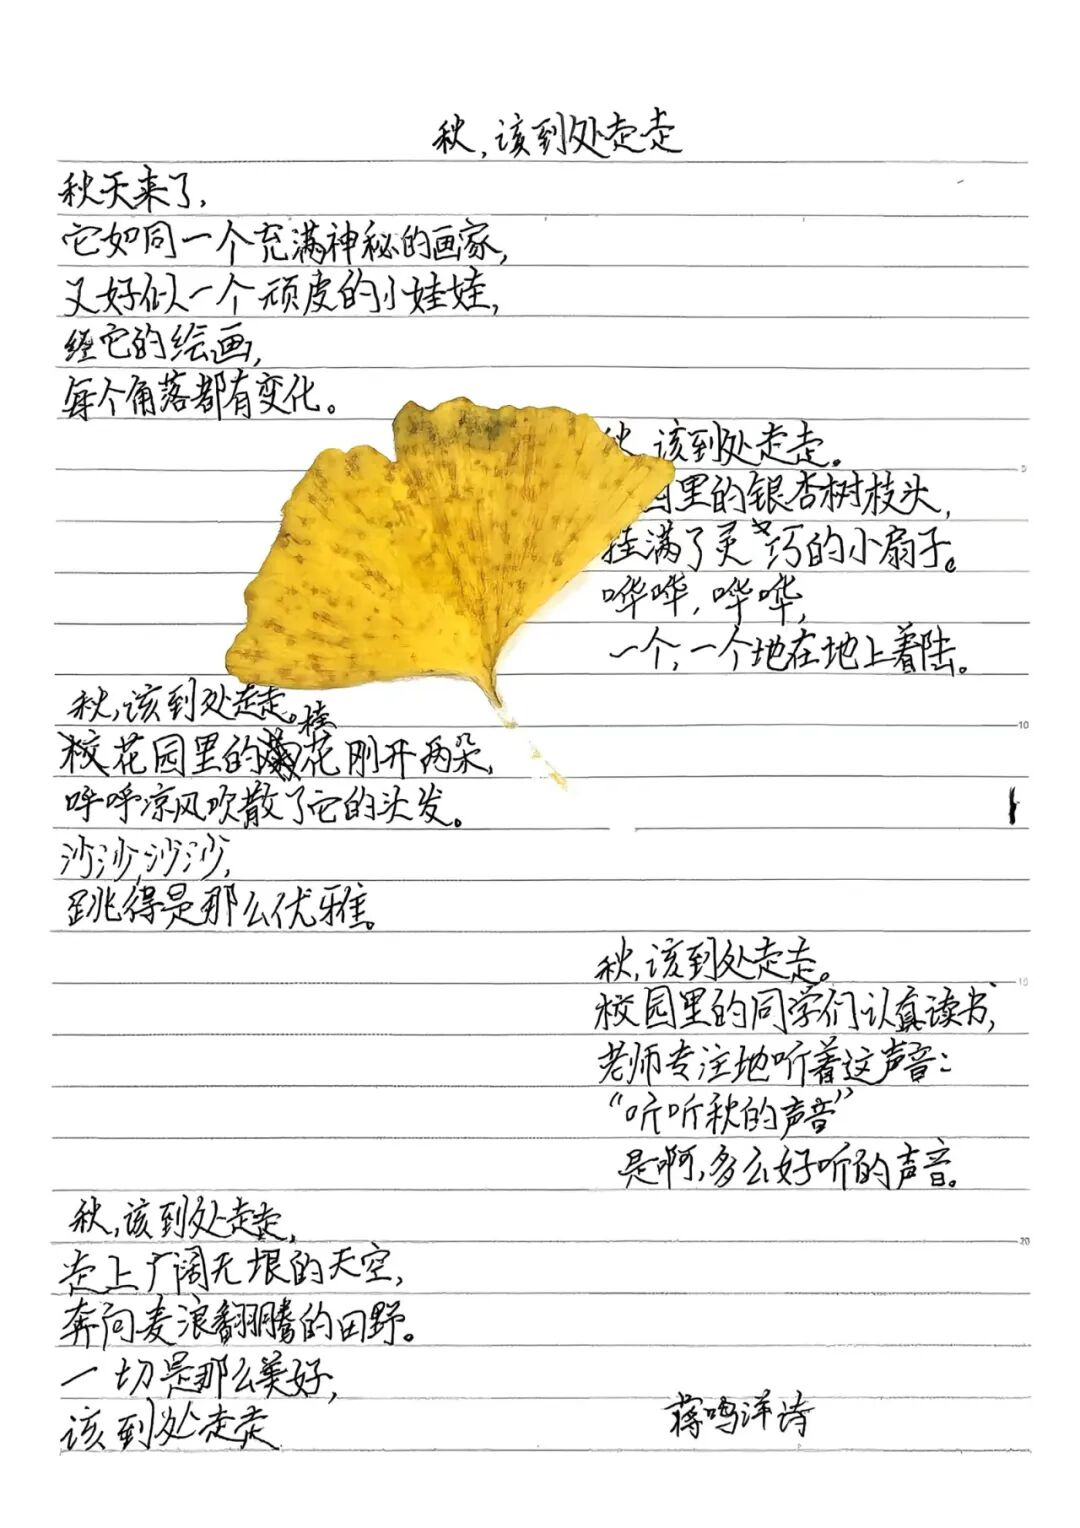 秋,该到处走走
秋天来了,
它如同一个充满神秘的画家,
又好似一个顽皮的小娃娃,
经它的绘画,
每个角落都有变化。
秋,该到处走走。
园里的银杏树枝头,
挂满了灵巧的小扇子。
哗哗,哗哗,
一个,一个地在地上着陆。
秋,该到处走走。
校花园里的桂花刚开两朵,
呼呼凉风吹散了它的头发。
沙沙,沙沙,
跳得是那么优雅。
秋,该到处走走。
校园里的同学们认真读书,
老师专注地听着这声音:
“听听秋的声音”
是啊,多么好听的声音。
秋,该到处走走,
走上广阔无垠的天空,
奔向麦浪翻腾的田野。
一切是那么美好,
该到处走走
蒋鸣洋诗
5
10
15
20